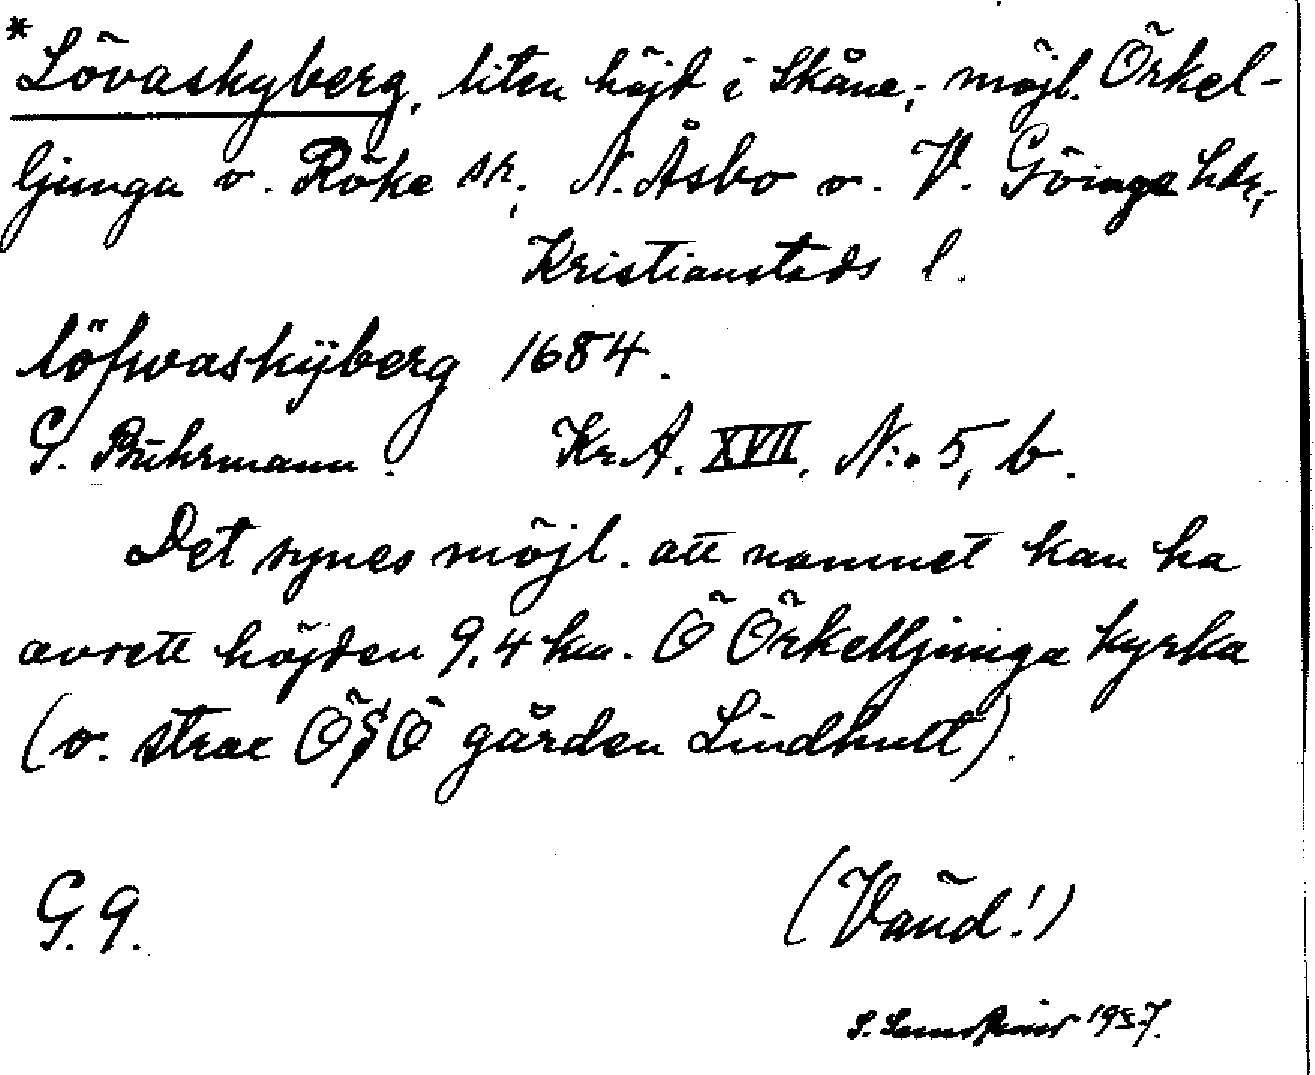 *Lövaskyberg, liten höjd i Skåne; möjl. Örkel-
ljunga o. Röke sn, N. Åsbo o. V. Göinge hdr;
Kristianstads l.
löfwaskÿberg 1684.
G. Buhrmann. Kr.A. XVII, N:o 5, b.
Det synes möjl. att namnet kan ha
avsett höjden 9,4 km. Ö Örkelljunga kyrka
(o. strax ÖSÖ gården Lindhult).
G.9. (Vänd!)
S. 1957.